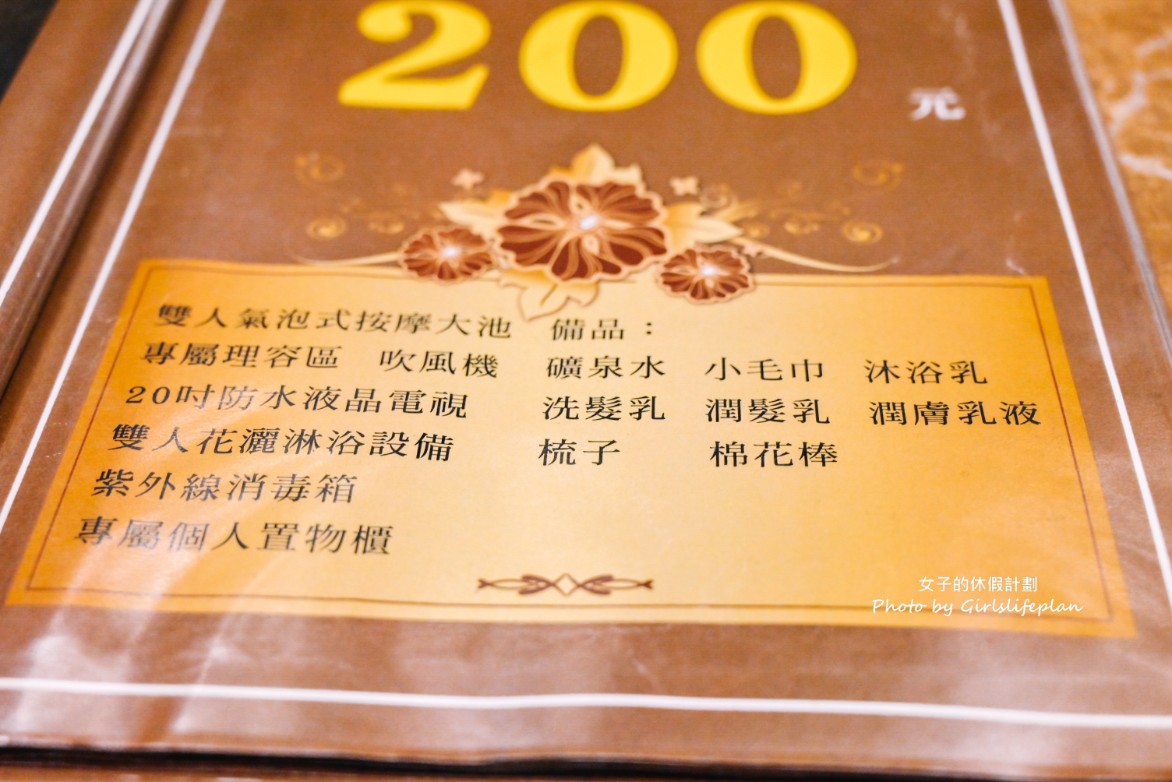 200 元
雙人氣泡式按摩大池 備品：
專屬理容區 吹風機 礦泉水 小毛巾 沐浴乳
20吋防水液晶電視 洗髮乳 潤髮乳 潤膚乳液
雙人花灑淋浴設備 梳子 棉花棒
紫外線消毒箱
專屬個人置物櫃
女子的休假計劃
Photo by Girlslifeplan